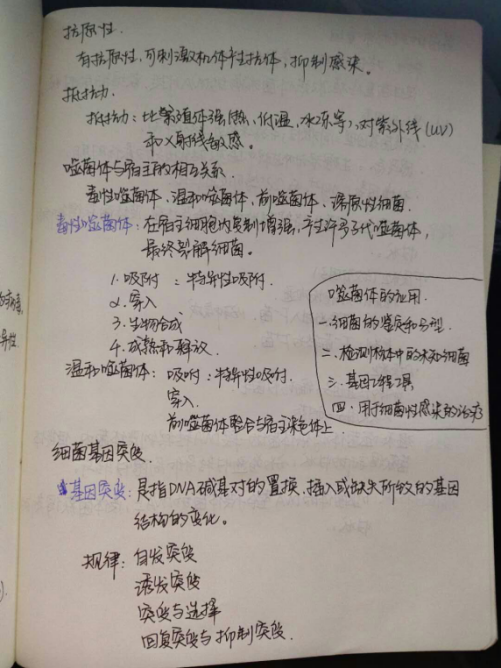 抗原性.
有抗原性,可刺激机体产生抗体,抑制感染。
抵抗力.
抵抗力:比繁殖体强(热、低温、冰冻等),对紫外线(UV)
和X射线敏感。
噬菌体与宿主的相互关系.
毒性噬菌体、温和噬菌体、前噬菌体、溶原性细菌.
毒性噬菌体:在宿主细胞内复制增强,产生许多子代噬菌体,
最终裂解细菌。
1.吸附:特异性吸附.
2.穿入
3.生物合成
4.成熟和释放.
温和噬菌体:吸附:特异性吸附.
穿入.
前噬菌体整合与宿主染色体上.
噬菌体的应用.
一.细菌的鉴定和分型.
二.检测标本中的未知细菌
三.基因工程工具
四.用于细菌性感染的治疗
细菌基因突变.
基因突变:是指DNA碱基对的置换、插入或缺失所致的基因
结构的变化。
规律:自发突变
诱发突变
突变与选择
回复突变与抑制突变.